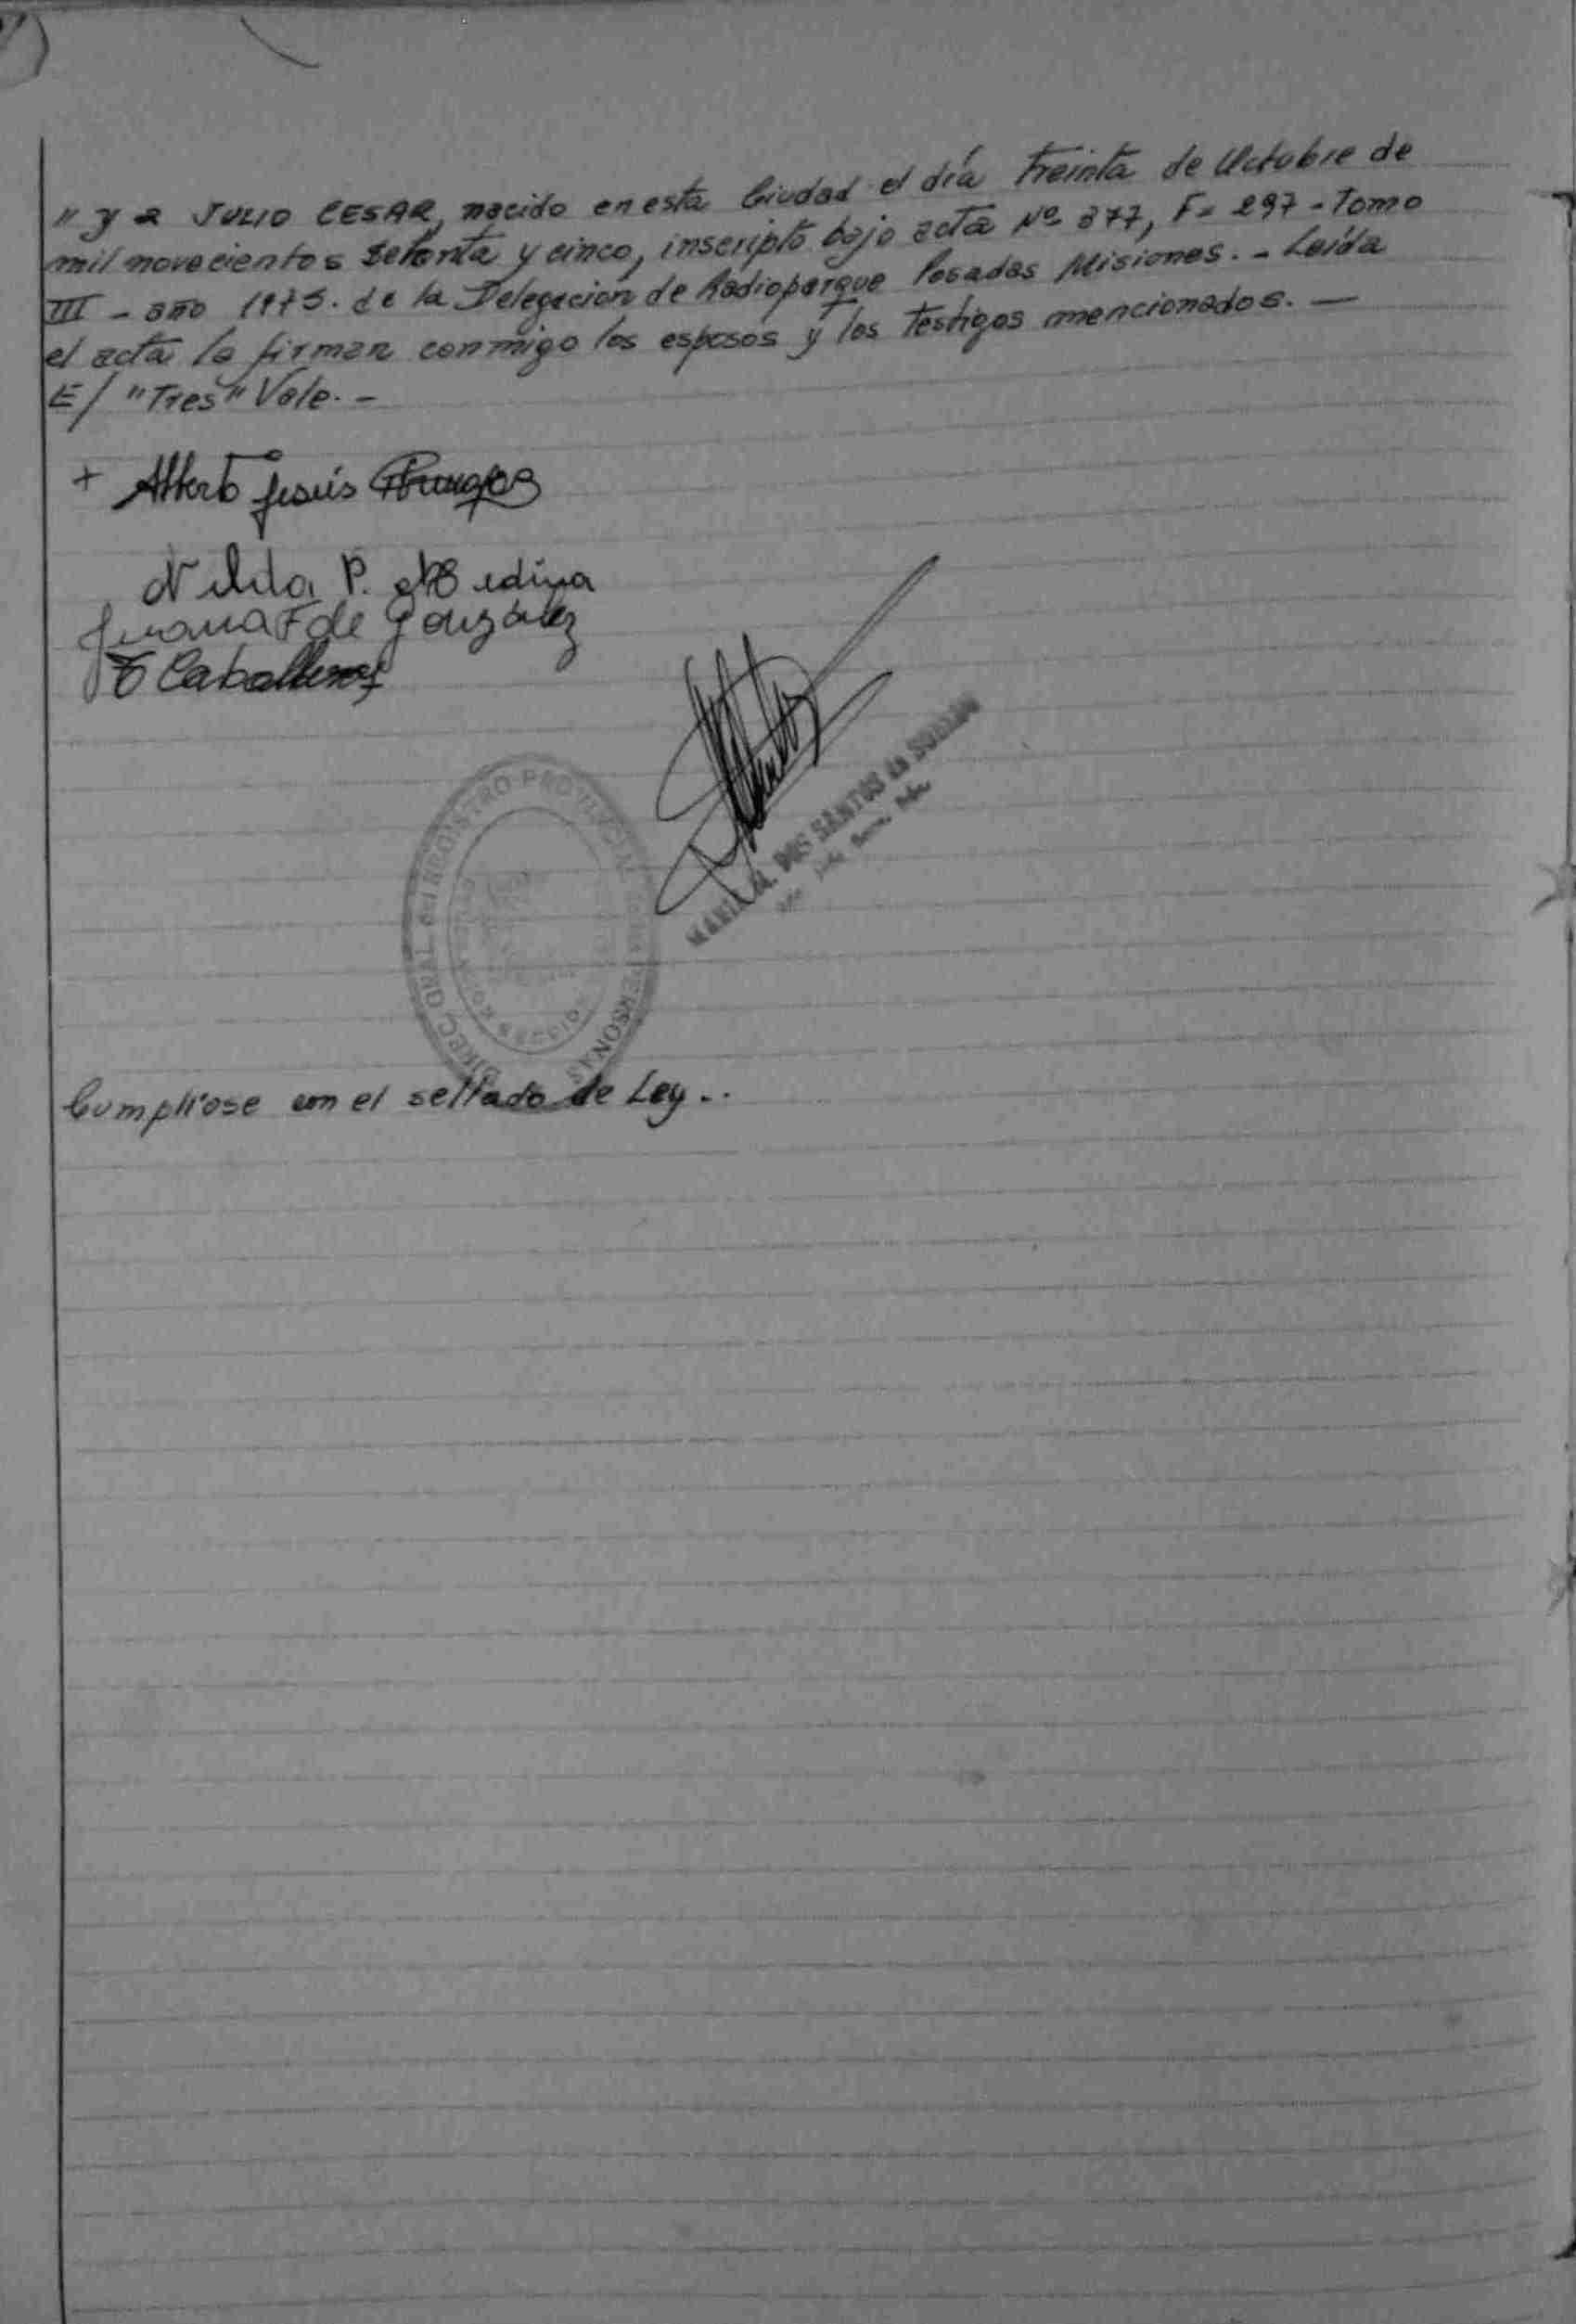 " y a JULIO CESAR, nacido en esta Ciudad el día treinta de Octubre de
mil novecientos setenta y cinco, inscripto bajo acta Nº 377, Fº 297 - Tomo
III - año 1975. de la Delegación de Radioparque Posadas Misiones. - Leída
el acta la firman conmigo los esposos y los testigos mencionados. —
E/ "Tres" Vale. -
+ Alberto Jesús
Nelida P. Medina
Juana F de González
Caballero
MARIA DOS SANTOS de
DIREC. GRAL. del REGISTRO PROVINCIAL PERSONAS
Cumpliose con el sellado de Ley..